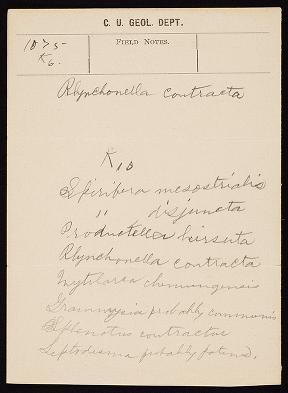 C. U. GEOL. DEPT.
1075-
K6.
FIELD NOTES.
Rhynchonella contracta
K10
Spirifera mesostrialis
" disjuncta
Productella hirsuta
Rhynchonella contracta
Mytilarca chemungensis
Grammysia probably communis
Sphenotus contractus
Leptodesma probably